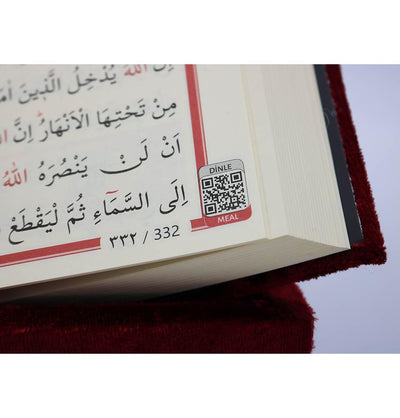 اللّٰهَ يُدْخِلُ الَّذ۪ينَ
مِنْ تَحْتِهَا الْاَنْهَارُۜ اِنَّ
اَنْ لَنْ يَنْصُرَهُ اللّٰهُ
اِلَى السَّمَٓاءِ ثُمَّ لْيَقْطَعْ
DİNLE
MEAL
٣٣٢ / 332